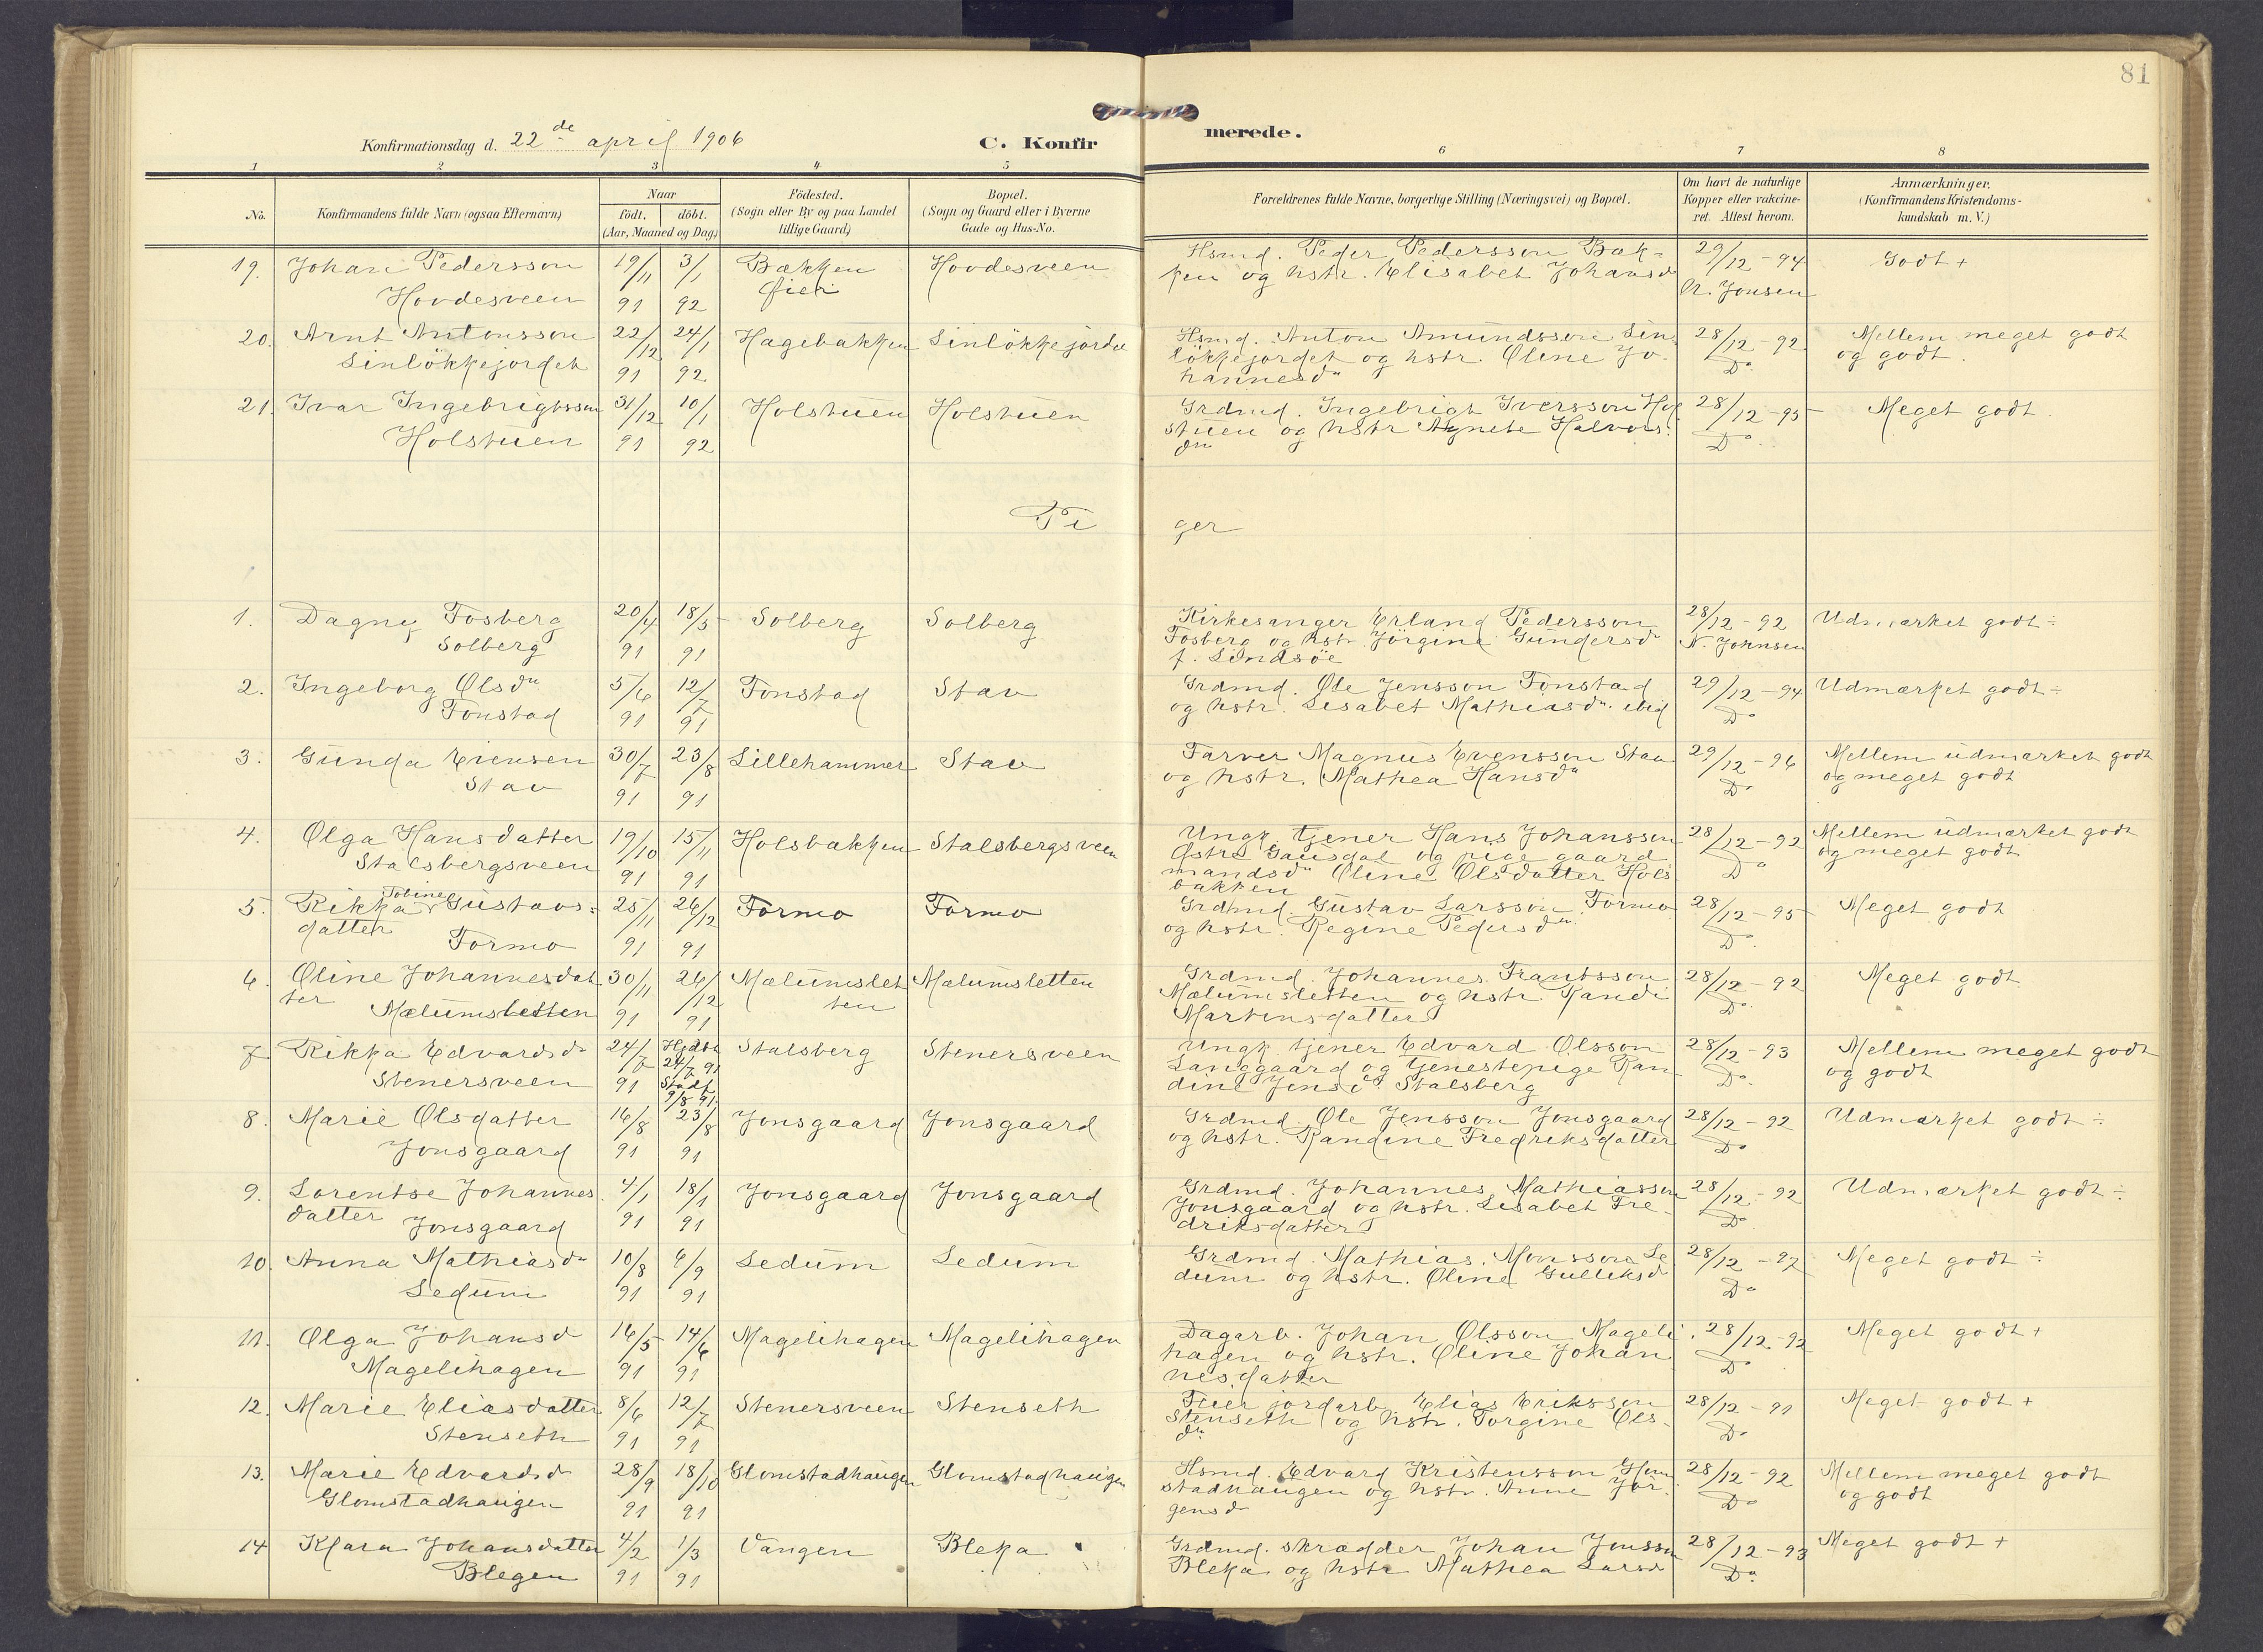 81
Konfirmationsdag d. 22de april 1906
C. Konfirmerede.
1 2 3 4 5 6 7 8
No.
Konfirmandens fulde Navn (ogsaa Efternavn)
Naar
födt. döbt.
(Aar, Maaned og Dag)
Födested.
(Sogn eller By og paa Landet
tillige Gaard)
Bopæl.
(Sogn og Gaard eller i Byerne
Gade og Hus-No.
Forældrenes fulde Navne, borgerlige Stilling (Næringsvei) og Bopæl.
Om havt de naturlige
Kopper eller vakcine-
ret. Attest herom.
Anmærkninger.
(Konfirmandens Kristendoms-
kundskab m. V.)
19. Johan Pedersson
Hovdesveen
19/11 91
3/1 92
Bækken
Øier
Hovdesveen
Hsmd. Peder Pedersson Bæk-
ken og hstr. Elisabet Johansdr
29/12 - 94
N. Jonsen
Godt +
20. Arnt Antonsson
Linlökkejordet
22/12 91
24/1 92
Hagebakken
Linlökkejordet
Hsmd. Anton Amundsson Lin
lökkejordet og hstr. Oline Jo-
hannesdr
28/12 - 92
Do
Mellem meget godt
og godt.
21. Ivar Ingebrigtsson
Holstuen
31/12 91
10/1 92
Holstuen
Holstuen
Grdmd. Ingebrigt Iversson Hol
stuen og hstr Agnete Halvors.
dr
28/12 - 95
Do
Meget godt.
Piger
1. Dagny Fosberg
Solberg
20/4 91
18/5 91
Solberg
Solberg
Kirkesanger Erland Pedersson
Fosberg og hstr. Jörgine Gundersdr
f. Lindsöe
28/12 - 92
N. Johnsen
Udmærket godt ÷
2. Ingeborg Olsdr
Fonstad
5/6 91
12/7 91
Fonstad
Stav
Grdmd. Ole Jensson Fonstad
og hstr. Lisabet Mathiasdr. ibid
29/12 - 94
Do
Udmærket godt ÷
3. Gunda Evensen
Stav
30/7 91
23/8 91
Lillehammer
Stav
Farver Magnus Evensson Stav
og hstr. Mathea Hansdr
29/12 - 96
Do
Mellem udmærket godt
og meget godt
4. Olga Hansdatter
Stalsbergsveen
19/10 91
15/11 91
Holsbakken
Stalsbergsveen
Ungk. tjener Hans Johansson
Östre Gausdal og pige gaard
mandsdr Oline Olsdatter Hols
bakken
28/12 - 92
Do
Mellem udmærket godt
og meget godt
5. Rikka Tobine Gustavs-
datter
Formo
25/11 91
26/12 91
Formo
Formo
Grdmd. Gustav Larsson Formo
og hstr. Regine Pedersdr
28/12 - 95
Do
Meget godt
6. Oline Johannesdat
ter
Mælumsletten
30/11 91
26/12 91
Mælumslet
ten
Mælumsletten
Grdmd. Johannes Frantsson
Mælumsletten og hstr. Randi
Martinsdatter
28/12 - 92
Do
Meget godt
7. Rikka Edvardsdr
Stenersveen
24/7 91
Hjdbt
24/7 91
Stadf.
9/8 91.
Stalsberg
Stenersveen
Ungk. tjener Edvard Olsson
Langgaard og tjenestepige Ran
dine Jensdr Stalsberg
28/12 - 93
Do
Mellem meget godt
og godt
8. Marie Olsdatter
Jonsgaard
16/8 91
23/8 91
Jonsgaard
Jonsgaard
Grdmd. Ole Jensson Jonsgaard
og hstr. Randine Fredriksdatter
28/12 - 92
Do
Udmærket godt ÷
9. Lorentse Johannes
datter
Jonsgaard
4/1 91
18/1 91
Jonsgaard
Jonsgaard
Grdmd. Johannes Mathiasson
Jonsgaard og hstr. Lisabet Fre-
driksdatter
28/12 - 92
Do
Udmærket godt ÷
10. Anna Mathiasdr
Ledum
10/8 91
6/9 91
Ledum
Ledum
Grdmd. Mathias Monsson Le
dum og hstr. Oline Gulliksdr
28/12 - 97
Do
Meget godt ÷
11. Olga Johansd
Magelihagen
16/5 91
14/6 91
Magelihagen
Magelihagen
Dagarb. Johan Olsson Mageli
hagen og hstr. Oline Johan
nesdatter
28/12 - 92
Do
Meget godt +
12. Marie Eliasdatter
Stenseth
8/6 91
12/7 91
Stenersveen
Stenseth
Feier jordarb. Elias Eriksson
Stenseth og hstr. Torgine Ols-
dr
28/12 - 91
Do
Meget godt +
13. Marie Edvardsdr
Glomstadhaugen
28/9 91
18/10 91
Glomstadhaugen
Glomstadhaugen
Hsmd. Edvard Kristensson Glom
stadhaugen og hstr. Anne Jör-
gensdr
28/12 - 92
Do
Mellem meget godt
og godt
14 Klara Johansdatter
Blegen
4/2 91
1/3 91
Vangen
Bleka
Grdmd. skrædder Johan Jonsson
Bleka og hstr Mathea Larsdr
28/12 - 93
Do
Meget godt +